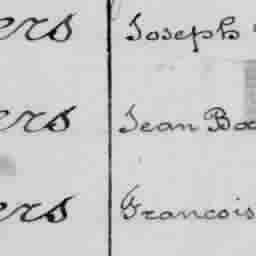 ers Joseph
ers Jean Ba
ers Francois